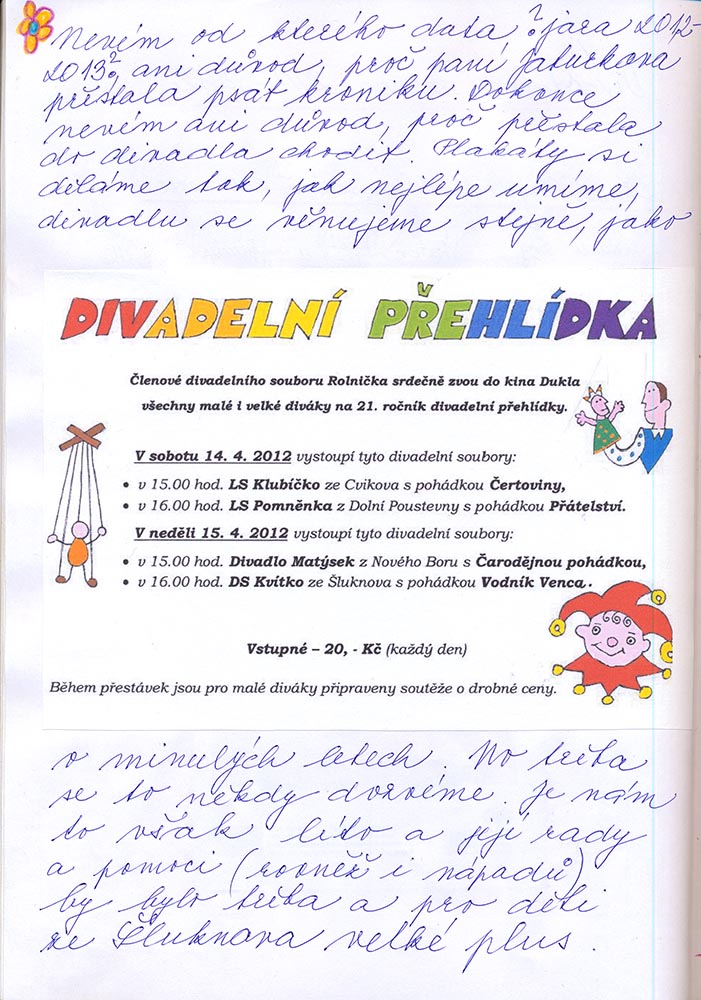 Nevím od kterého data, ? jara 2012-
2013?, ani důvod, proč paní
přestala psát kroniku. Dokonce
nevím ani důvod, proč přestala
do divadla chodit. Plakáty si
děláme tak, jak nejlépe umíme,
divadlu se věnujeme stejně, jako
DIVADELNÍ PŘEHLÍDKA
Členové divadelního souboru Rolnička srdečně zvou do kina Dukla
všechny malé i velké diváky na 21. ročník divadelní přehlídky.
V sobotu 14. 4. 2012 vystoupí tyto divadelní soubory:
• v 15.00 hod. LS Klubíčko ze Cvikova s pohádkou Čertoviny,
• v 16.00 hod. LS Pomněnka z Dolní Poustevny s pohádkou Přátelství.
V neděli 15. 4. 2012 vystoupí tyto divadelní soubory:
• v 15.00 hod. Divadlo Matýsek z Nového Boru s Čarodějnou pohádkou,
• v 16.00 hod. DS Kvítko ze Šluknova s pohádkou Vodník Venca.
Vstupné – 20, - Kč (každý den)
Během přestávek jsou pro malé diváky připraveny soutěže o drobné ceny.
v minulých letech. No třeba
se to někdy dozvíme. Je nám
to však líto a její rady
a pomoci (rovněž i nápadů)
by bylo třeba a pro děti
ze Šluknova velké plus.